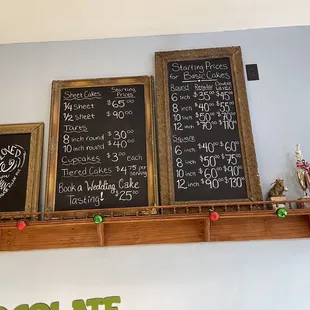 Sheet Cakes Starting Prices
¼ Sheet $65.00
½ Sheet $90.00
Tarts
8 inch round $30.00
10 inch round $40.00
Cupcakes $3.00 each
Tiered Cakes $4.75 per serving
Book a Wedding Cake
Tasting! $25.00
Starting Prices
for Basic Cakes
Round Regular Double Layer
6 inch $35 $45
8 inch $40 $55
10 inch $50 $75
12 inch $70 $110
Square
inch $40 $60
8 inch $50 $75
10 inch $60 $90
12 inch $90 $130
CHOCOLATE